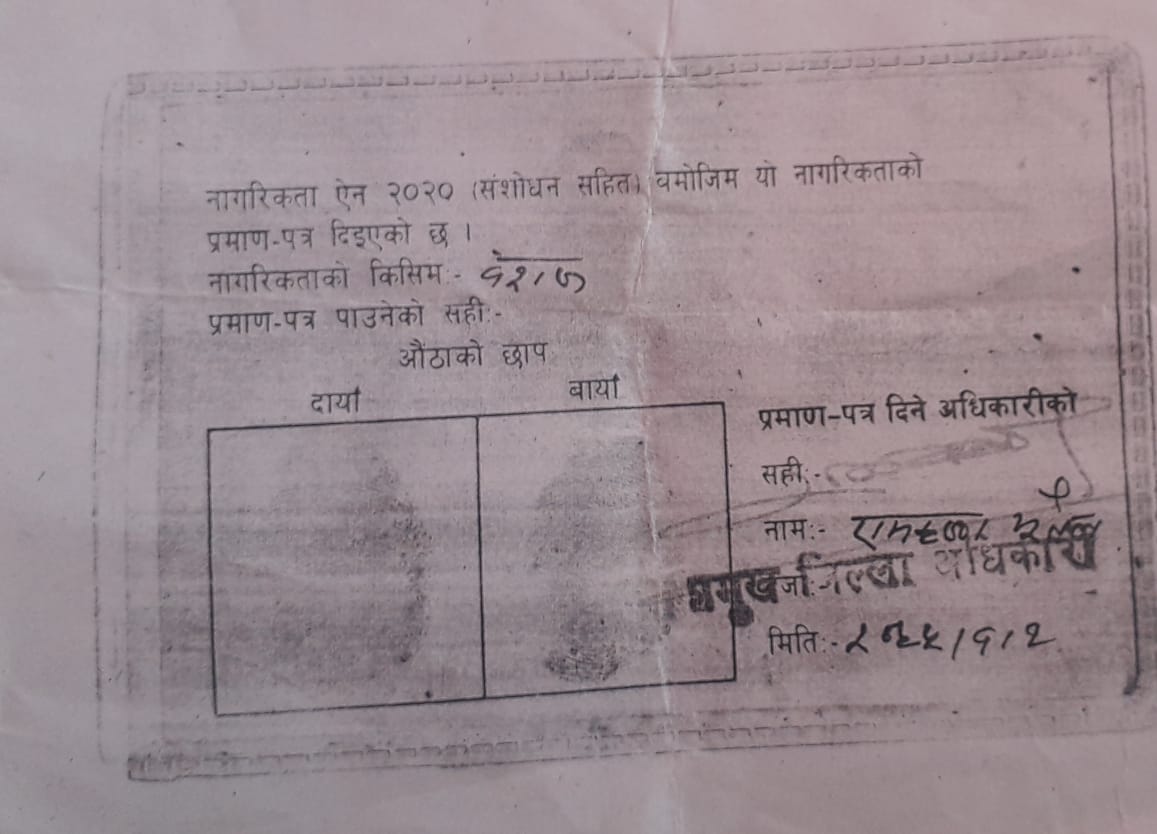 नागरिकता ऐन २०२० (संशोधन सहित) वमोजिम यो नागरिकताको
प्रमाण-पत्र दिइएको छ ।
नागरिकताको किसिम:- वंशज
प्रमाण-पत्र पाउनेको सही:-
औंठाको छाप
दायाँ बायाँ
प्रमाण-पत्र दिने अधिकारीको
सही:-
नाम:-
प्रमुख जिल्ला अधिकारी
मिति:-